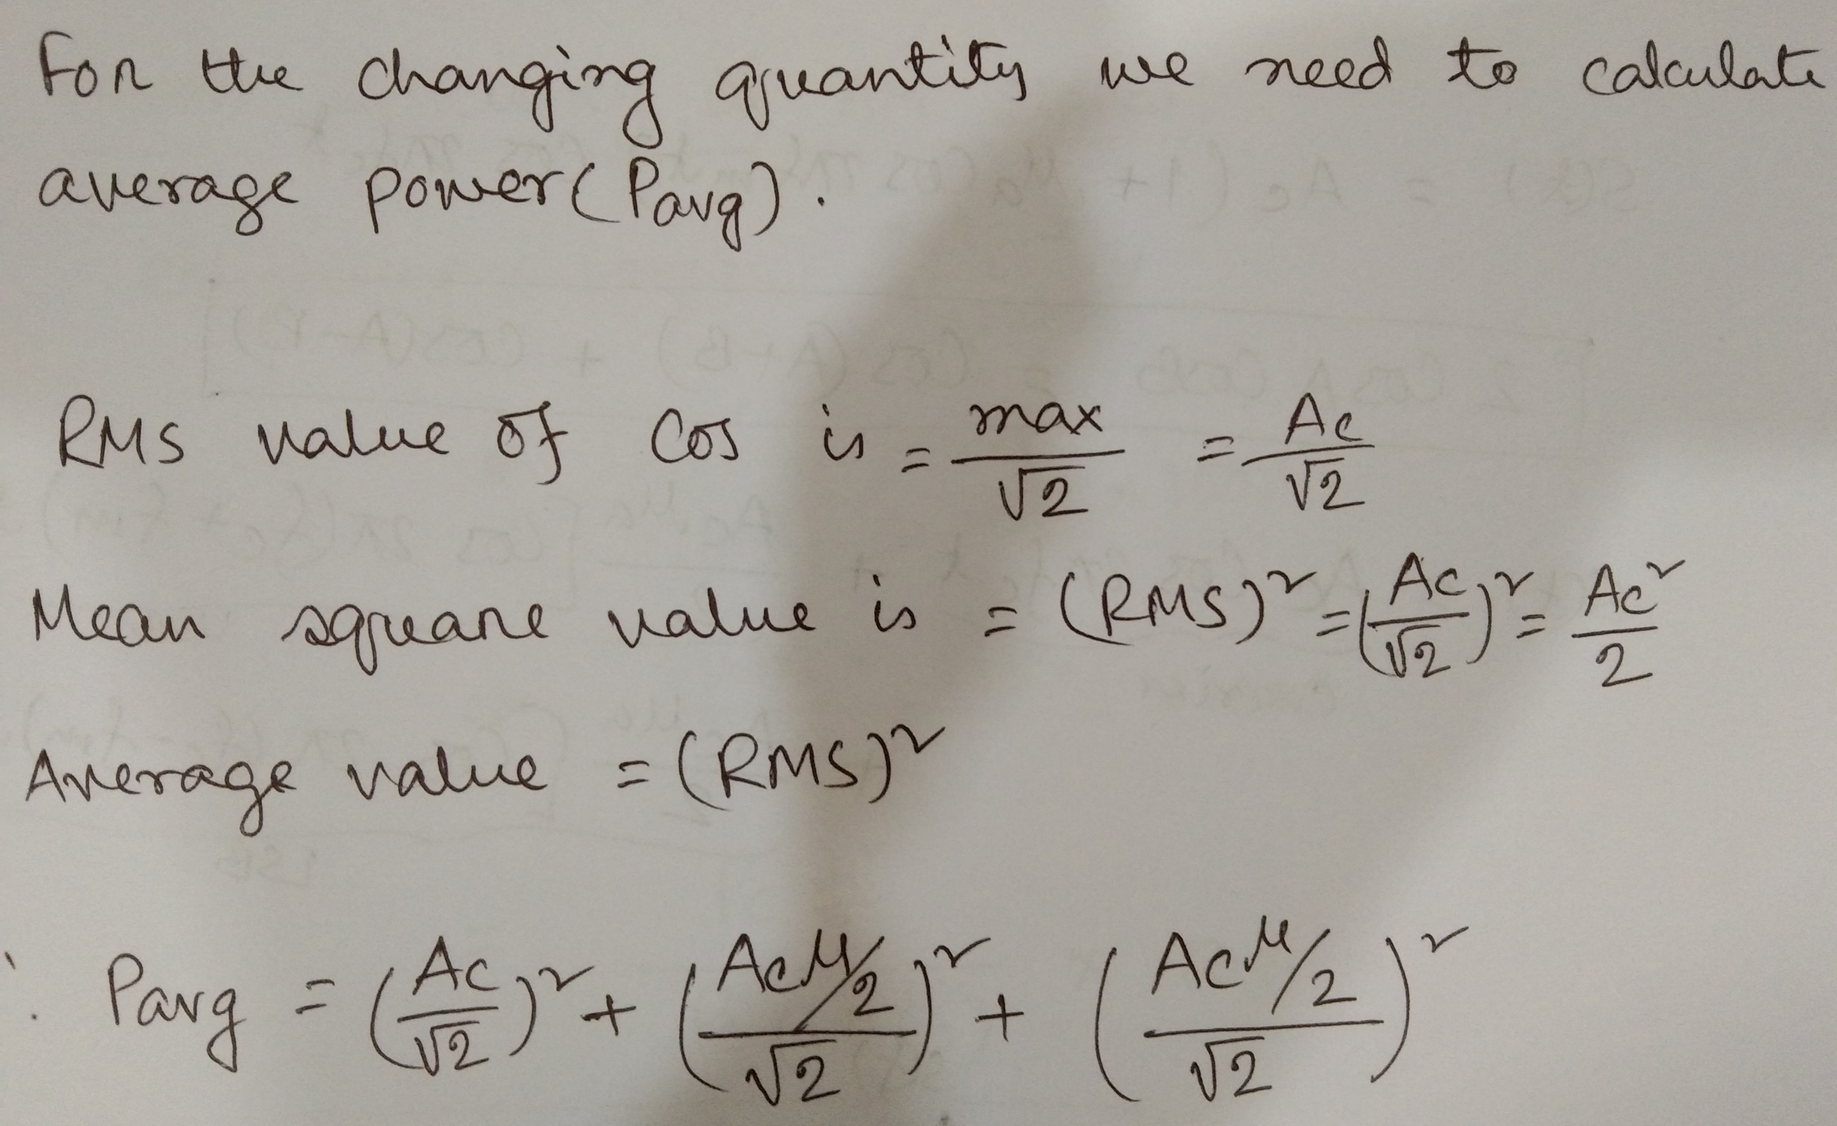 For the changing quantity we need to calculate
average power (Pavg).
RMS value of Cos is = max/√2 = Ac/√2
Mean square value is = (RMS)² = (Ac/√2)² = Ac²/2
Average value = (RMS)²
∴ Pavg = (Ac/√2)² + ((Acμ/2)/√2)² + ((Acμ/2)/√2)²